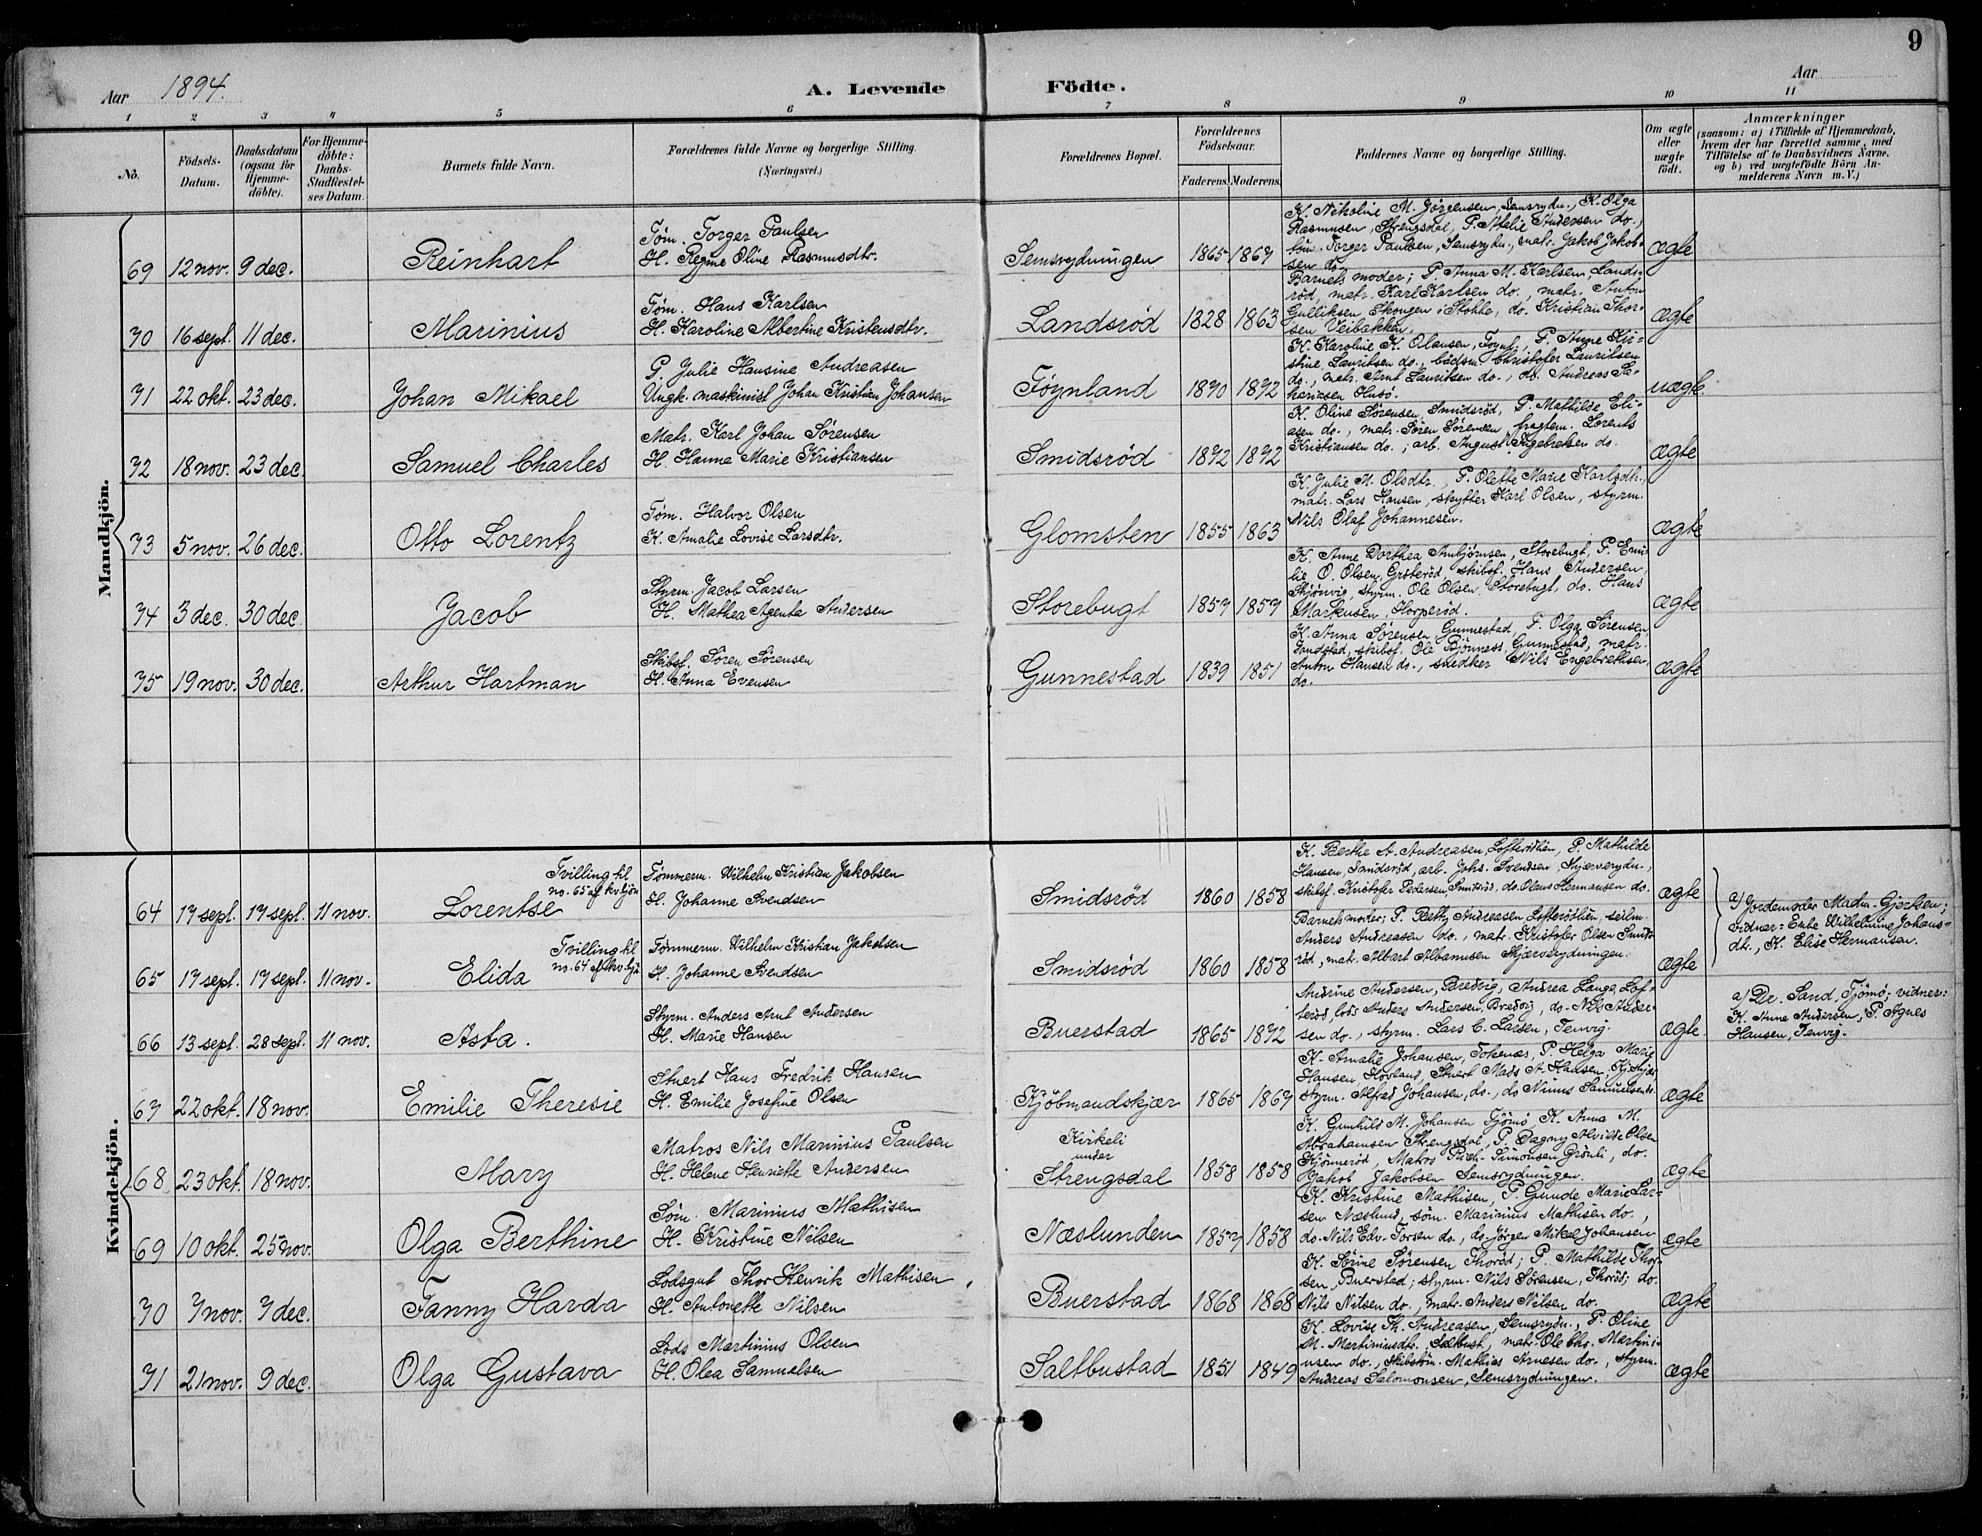 9
Aar 1894. A. Levende Födte. Aar
1 2 3 4 5 6 7 8 9 10 11
No.
Födsels-Datum.
Daabsdatum (ogsaa for Hjemme-döbte).
For Hjemme-döbte: Daabs-Stadfæstel-ses Datum.
Barnets fulde Navn.
Forældrenes fulde Navne og borgerlige Stilling. (Næringsvei.)
Forældrenes Bopæl.
Forældrenes Födselsaar.
Faderens. Moderens.
Faddernes Navne og borgerlige Stilling.
Om ægte eller uægte födt.
Anmærkninger
(saasom: a) i Tilfælde af Hjemmedaab,
hvem der har forrettet samme, med
Tilföielse af to Daabsvidners Navne.
og b) ved uægtefödte Börn An-
melderens Navn m. V.)
Mandkjön.
69 12 nov. 9 dec. Reinhart
Tøm. Torger Paulsen
H. Regine Oline Rasmusdtr.
Semsrydningen 1865 1867
K. Nikoline M. Jørgensen, Semsrydn., K. Olga
Rasmussen, Strengsdal, P. Athalie Andersen do.,
tøm. Torger Paulsen, Semsrydn., matr. Jakob Jakob-
sen do.
ægte
70 16 sept. 11 dec. Marinius
Tøm. Hans Karlsen
H. Karoline Albertine Kristensdtr.
Landsrød 1828 1863
Barnets moder; P. Anna M. Karlsen Lands-
rød, matr. Karl Karlsen do., matr. Anton
Gulliksen Skougen i Stokke, do. Kristian Thor-
sen Veibakken.
ægte
71 22 okt. 23 dec. Johan Mikael
P. Julie Hansine Andreasen
Ungk. maskinist Johan Kristian Johansen
Føynland 1870 1872
K. Karoline K. Olausen, Føynl., P. Anne Kir-
stine Lauritsen do., bådsm. Christofer Lauritsen
do., matr. Arnt Lauritsen do., do. Andreas Za-
hariasen Husø.
uægte
72 18 nov. 23 dec. Samuel Charles
Matr. Karl Johan Sørensen
H. Hanna Marie Kristiansen
Smidsrød 1872 1872
K. Oline Sørensen, Smidsrød, P. Mathilde Eli-
asen do., matr. Søren Sørensen, fragtem. Lorents
Kristiansen do., arb. August Ingebretsen do.
ægte
73 5 nov. 26 dec. Otto Lorentz
Tøm. Halvor Olsen
K. Amalie Lovise Larsdtr.
Glomsten 1855 1863
K. Julie M. Olsdtr., P. Olette Marie Karlsdtr.,
matr. Lars Hansen, skytter Karl Olsen, styrm.
Nils Olaf Johannesen.
ægte
74 3 dec. 30 dec. Jacob
Styrm Jacob Larsen
H. Mathea Agenta Andersen
Storebugt 1857 1857
K. Anne Dorthea Ambjørnsen, Storebugt, P. Emi-
lie O. Olsen, Grøterød, skibsf. Hans Andersen,
Skjønvig, styrm. Ole Olsen, Storebugt, do. Hans
Markusen, Horperød.
ægte
75 19 nov. 30 dec. Arthur Hartman
Skibsf. Søren Sørensen
H. Anna Evensen
Gunnestad 1839 1851
K. Anna Sørensen, Gunnestad, P. Olga Sørensen,
skibsf. Ole Bjønness, Gunnestad, matr.
Anton Hansen do., snedker Nils Engebrethsen,
do.
ægte
Kvindekjön.
64 17 sept. 17 sept. 11 nov. Lorentse
Tvilling til no. 65 af kvkjøn
Tømmerm. Wilhelm Kristian Jakobsen
H. Johanne Svendsen
Smidsrød 1860 1858
K. Berthe A. Andreasen, Lofterødhlien, P. Mathilde
Hansen, Sandsrød, arb. Johs. Svendsen, Skjærverydn.,
skibsf. Kristofer Pedersen Smidsrød, do. Olaus Hermansen do.
ægte
a) Jordemoder Madm. Gjertsen;
vidner: Enke Wilhelmine Johans-
dt., K. Elise Hermansen.
65 17 sept. 17 sept. 11 nov. Elida
Tvilling til no. 64 af kvkjø
Tømmerm. Wilhelm Kristian Jakobsen
H. Johanne Svendsen
Smidsrød 1860 1858
Barnets moder; P. Betty Andreasen, Lofterødhlien, seilm.
Anders Andreasen do., matr. Kristofer Olsen Smids-
rød, mat. Albart Albanusen Skjærverydningen.
ægte
66 13 sept. 28 sept. 11 nov. Asta.
Styrm. Anders Arnt Andersen
H. Marie Hansen
Buerstad 1865 1872
Andrine Andersen, Bredvig, Andrea Lange, Lof-
terød, lods Anders Andersen, Bredvig, do. Nils Ander-
sen do., styrm. Lars C. Larsen, Tenvig.
ægte
a) Dr. Sand, Tjømø; vidner:
K. Anne Andersen, P. Agnes
Hansen, Tenvig.
67 22 okt. 18 nov. Emilie Theresie
Stuert Hans Fredrik Hansen
H. Emilie Josefine Olsen
Kjøbmandskjær 1865 1867
K. Amalie Johansen, Tokenæs, P. Helga Marie
Hansen Hovland, Stuert Mads A. Hansen, Kj.skjær
styrm. Alfred Johansen, do., do Ninus Samuelsen do.
ægte
68 23 okt. 18 nov. Mary
Matros Nils Marinius Paulsen
H. Helene Henriette Andersen
Kirkeli
under
Strengsdal 1858 1858
K. Gunhild M. Johansen Tjømø, K. Anna M.
Abrahamsen Strengsdal, P. Dagny Alvilde Olsen
Kjønnerød, Matros Rich. Simonsen Grønli, do.
Jakob Jakobsen Semsrydningen.
ægte
69 10 okt. 25 nov. Olga Berthine
Søm. Marinius Mathisen
H. Kristine Nilsen
Næslunden 1857 1858
K. Kristine Mathisen, P. Gunda Marie Lar-
sen Næslund, søm. Marinius Mathisen do.,
do. Nils Edv. Torsen do., do. Jørgen Mikal Johansen
ægte
70 7 nov. 7 dec. Fanny Harda
Lodsgut Thor Henrik Mathisen
H. Antonette Nilsen
Buerstad 1868 1868
K. Sørine Sørensen Thorød; P. Mathilde Thor-
sen, Buerstad; styrm. Nils Sørensen, Thorød; do.
Nils Nilsen do., matr. Anders Nilsen do.
ægte
71 21 nov. 9 dec. Olga Gustava
Lods Martinius Olsen
H. Olea Samuelsen
Saltbustad 1851 1849
K. Lovise Th. Andreasen, Semsrydn., P. Oline
M. Martiniusdt., Saltbust., matr. Ole Chr. Martini-
usen do., skibstøm. Mathias Arnesen do., styrm.
Andreas Salomonsen, Semsrydningen.
ægte